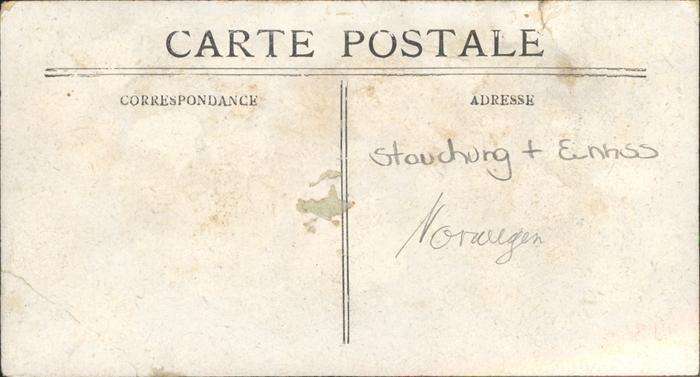 CARTE POSTALE
CORRESPONDANCE
ADRESSE
Stauchung + Einriss
Norwegen